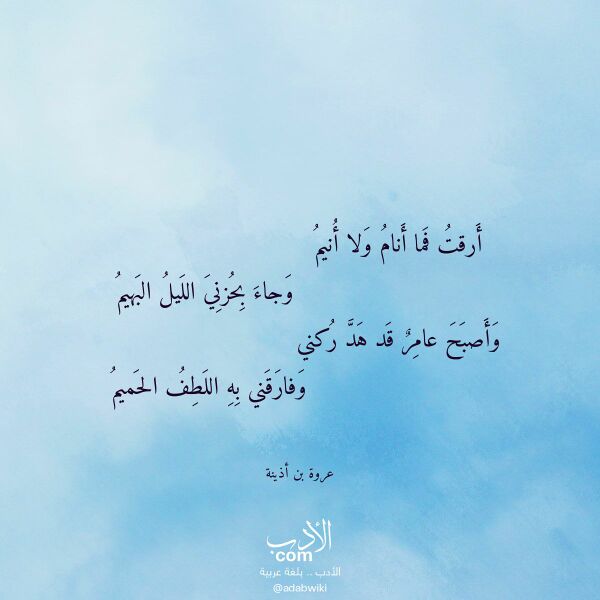 أَرقتُ فَما أَنامُ وَلا أُنيمُ
وَجاءَ بِحُزنِيَ اللَيلُ البَهيمُ
وَأَصبَحَ عامِرٌ قَد هَدَّ رُكني
وَفارَقَني بِهِ اللَطِفُ الحَميمُ
عروة بن أذينة
الأدب
com
الأدب .. بلغة عربية
@adabwiki